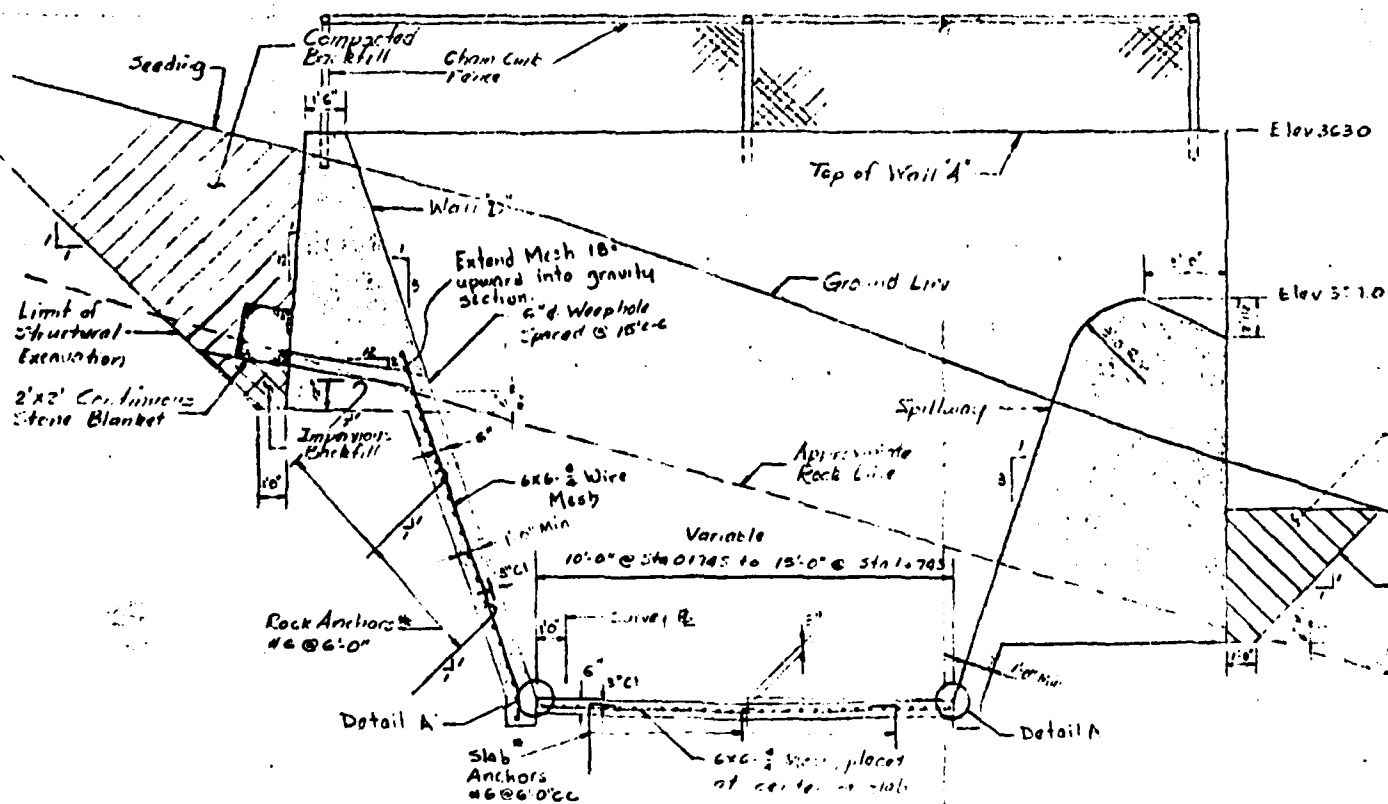 Seeding
Compacted
Backfill
Chain Link
Fence
1'6"
Elev 363.0
Top of Wall "A"
Wall "D"
12
1
3
Extend Mesh 18"
upward into gravity
section.
6"ø Weephole
Spaced @ 15'c-c
Ground Line
Limit of
Structural
Excavation
2'x2' Continuous
Stone Blanket
Impervious
Backfill
12
1'0"
6"
Spillway
Approximate
Rock Line
6x6-4/4 Wire
Mesh
1'0" Min
3"Cl
Variable
10'-0" @ Sta 0+745 to 15'-0" @ Sta 1+745
1
3
Rock Anchors*
#6 @ 6'-0"
1'0"
Survey
6"
3"Cl
1'0"
Detail A
Detail A
Slab*
Anchors
#6@6'-0"CC
6x6-4/4
placed
at center
slab